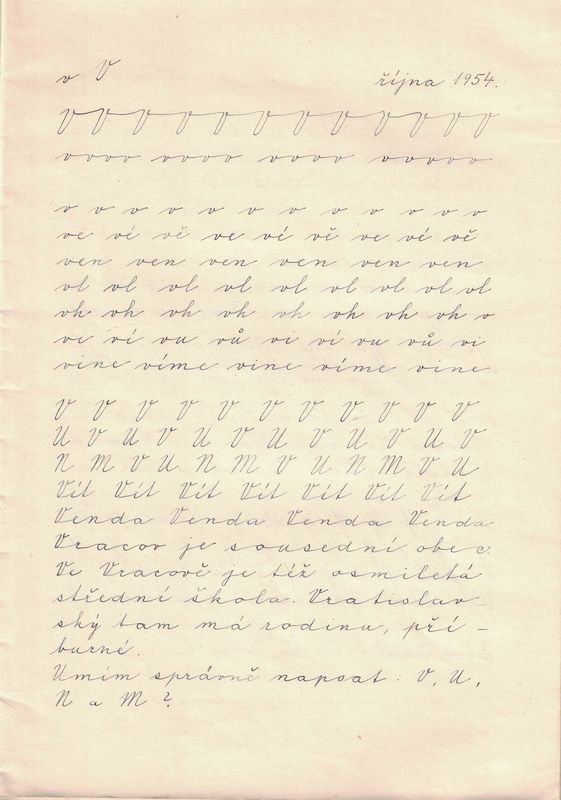 v V
října 1954.
V V V V V V V V V V V V
vvvv vvvv vvvv vvvvv
v v v v v v v v v v v v
ve vé vě ve ví vě ve vé vě
ven ven ven ven ven ven
vl vl vl vl vl vl vl vl vl
vh vh vh vh vh vh vh vh v
vi ví vu vů vi ví vu vů vi
vine víme vine víme vine
V V V V V V V V V V V
U V U V U V U V U V U V
N M V U N M V U N M V U
Vít Vít Vít Vít Vít Vít Vít
Venda Venda Venda Venda
Vracov je sousední obec.
Ve Vracově je též osmiletá
střední škola. Vratislav-
ský tam má rodinu, pří-
burné.
Umím správně napsat: V, U,
N a M?